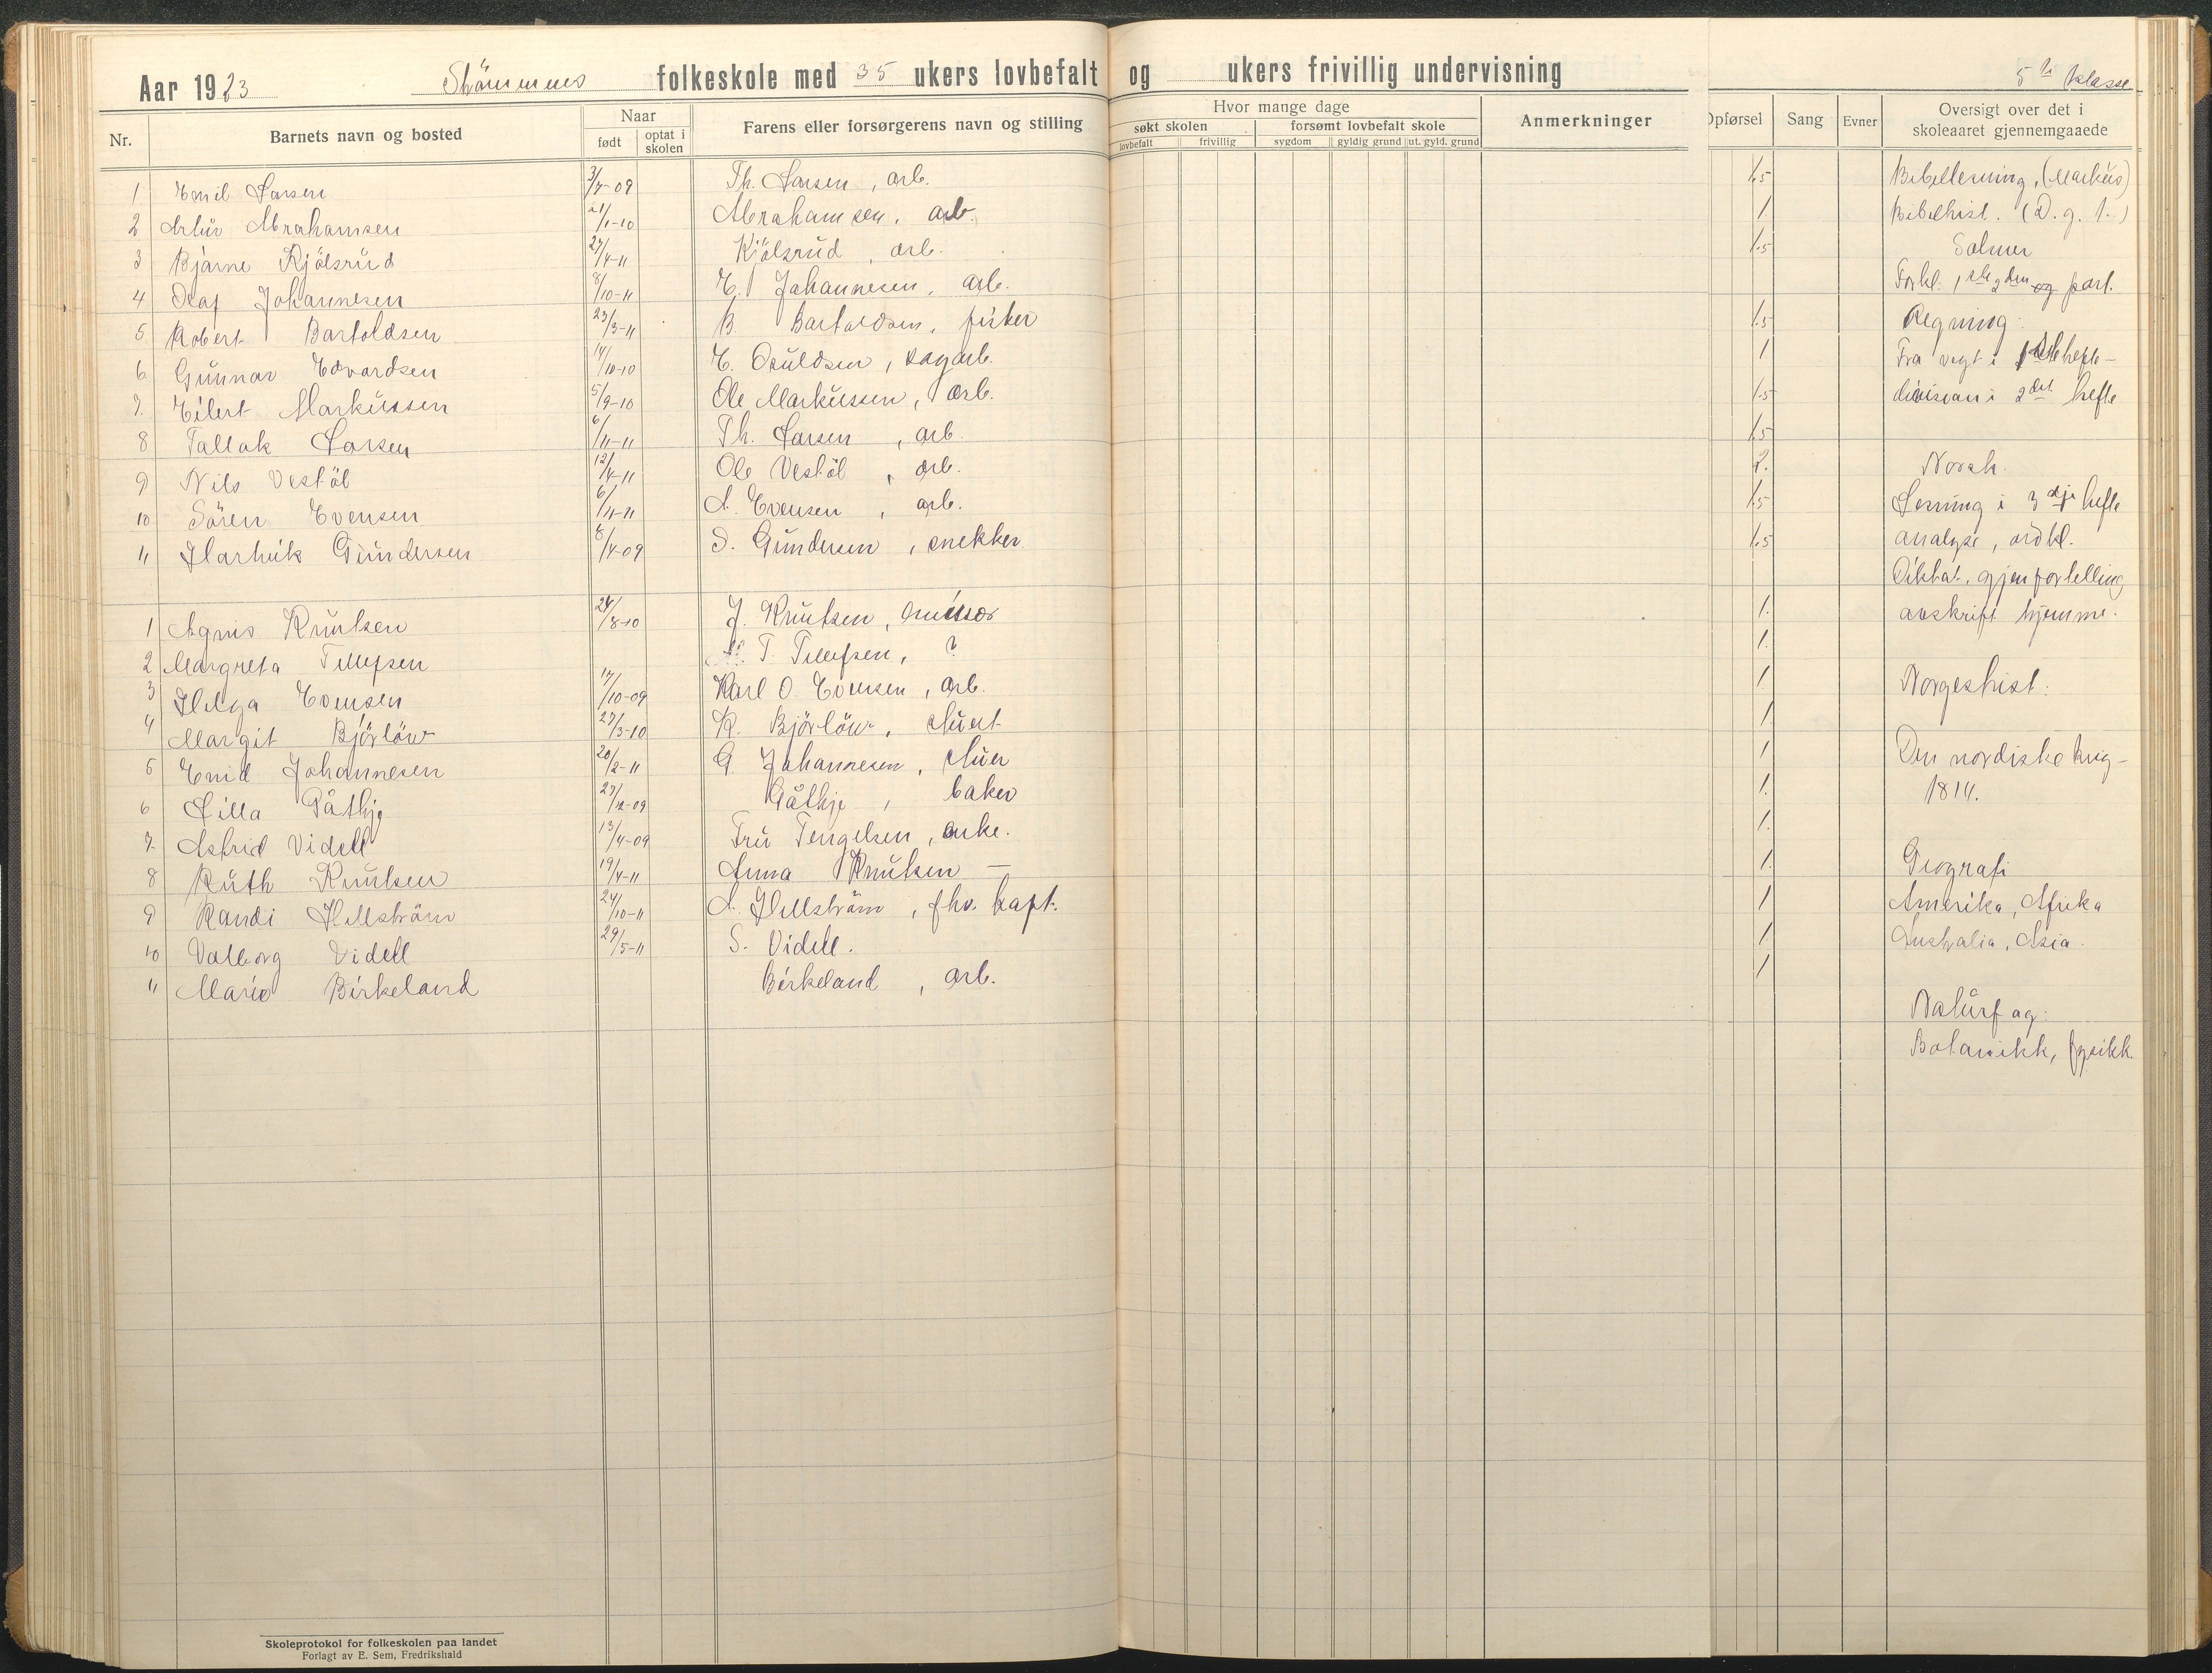 Aar 1923 Strömmens folkeskole med 35 ukers lovbefalt og ukers frivillig undervisning 5te klasse
Nr. Barnets navn og bosted Naar Farens eller forsørgerens navn og stilling Hvor mange dage Anmerkninger Opførsel Sang Evner Oversigt over det i skoleaaret gjennemgaaede
født optat i skolen søkt skolen forsømt lovbefalt skole
lovbefalt frivillig sygdom gyldig grund ut. gyld. grund
1 Emil Larsen 3/7-09 Th. Larsen, arb. 1.5 Bibellesning, (Markus)
2 Artur Abrahamsen 21/1-10 Abrahamsen, arb. 1 Bibelhist. (D. g. t.)
3 Bjarne Kjölsrud 27/4-11 Kjölsrud, arb. 1.5 Salmer
4 Olaf Johannesen 8/10-11 E. Johannesen, arb. Forkl. 1ste 2den og part.
5 Robert Bartoldsen 23/3-11 B. Bartoldsen, fisker 1.5 Regning:
6 Gunnar Edvardsen 14/10-10 E. Osuldsen, sagarb. 1 Fra vegt i hefte-
7. Eilert Markussen 5/9-10 Ole Markussen, arb. 1.5 division i 2det hefte
8 Tallak Larsen 6/11-11 Th. Larsen, arb. 1.5
9 Nils Vestöl 12/4-11 Ole Vestöl, arb. 2. Norsk.
10 Sören Evensen 6/11-11 A. Evensen, arb. 1.5 Lesning i 3dje hefte
11 Hartvik Gundersen 8/4-09 S. Gundersen, snekker 1.5 analyse, ordkl.
Diktat, gjenfortelling
1 Agnes Knutsen 24/8-10 J. Knutsen, 1. avskrift hjemme.
2 Margreta Tellefsen T. Tellefsen, ? 1.
3 Helga Evensen 17/10-09 Karl O. Evensen, arb. 1 Norgeshist:
4 Margit Björlöw 27/3-10 K. Björlöw, 1
5 Enid Johannesen 20/2-11 G. Johannesen, 1 Den nordiske krig -
6 Lilla Gåthje 27/12-09 Gåthje, baker 1. 1814.
7. Astrid Videll 13/4-09 Fru Tengelsen, enke. 1.
8 Ruth Knutsen 19/4-11 Anna Knutsen — 1. Geografi
9 Randi Hellström 24/10-11 A. Hellström, fhv. kapt. 1 Amerika, Afrika
10 Valborg Videll 29/5-11 S. Videll. 1 Australia, Asia.
11 Marie Birkeland Birkeland, arb. 1
Naturfag:
Botanikk, fysikk.
Skoleprotokol for folkeskolen paa landet
Forlagt av E. Sem, Fredrikshald